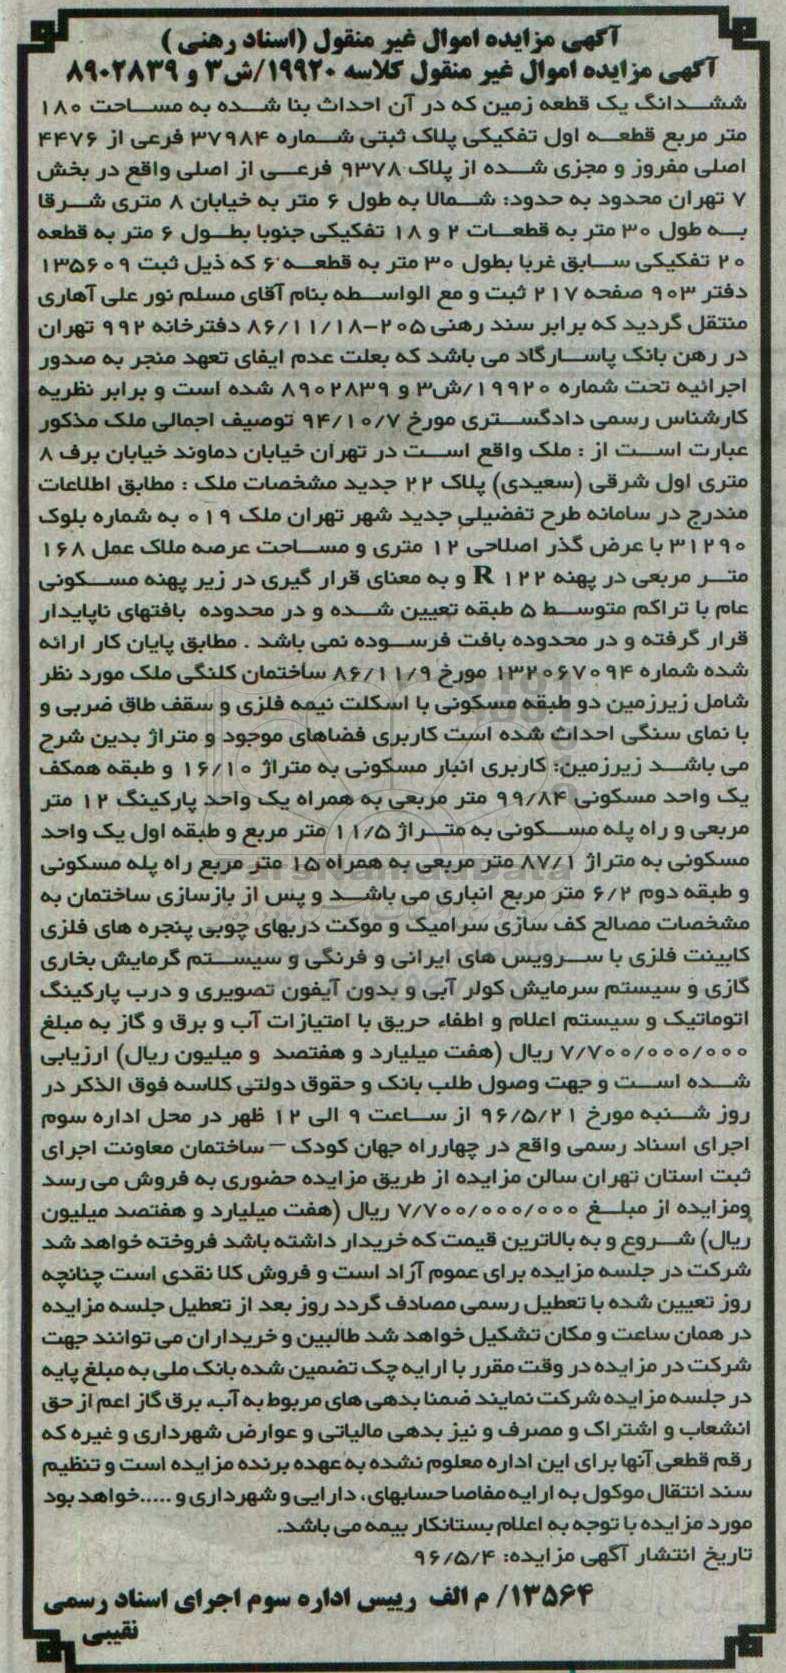 آگهی مزایده اموال غیر منقول (اسناد رهنی )
آگهی مزایده اموال غیر منقول کلاسه ۱۹۹۲۰/ش۳ و ۸۹۰۲۸۳۹
ششدانگ یک قطعه زمین که در آن احداث بنا شده به مساحت ۱۸۰
متر مربع قطعه اول تفکیکی پلاک ثبتی شماره ۳۷۹۸۴ فرعی از ۴۴۷۶
اصلی مفروز و مجزی شده از پلاک ۹۳۷۸ فرعی از اصلی واقع در بخش
۷ تهران محدود به حدود: شمالا به طول ۶ متر به خیابان ۸ متری شرقا
به طول ۳۰ متر به قطعات ۲ و ۱۸ تفکیکی جنوبا بطول ۶ متر به قطعه
۲۰ تفکیکی سابق غربا بطول ۳۰ متر به قطعه ۶ که ذیل ثبت ۱۳۵۶۰۹
دفتر ۹۰۳ صفحه ۲۱۷ ثبت و مع الواسطه بنام آقای مسلم نور علی آهاری
منتقل گردید که برابر سند رهنی ۲۰۵-۸۶/۱۱/۱۸ دفترخانه ۹۹۲ تهران
در رهن بانک پاسارگاد می باشد که بعلت عدم ایفای تعهد منجر به صدور
اجرائیه تحت شماره ۱۹۹۲۰/ش۳ و ۸۹۰۲۸۳۹ شده است و برابر نظریه
کارشناس رسمی دادگستری مورخ ۹۴/۱۰/۷ توصیف اجمالی ملک مذکور
عبارت است از : ملک واقع است در تهران خیابان دماوند خیابان برف ۸
متری اول شرقی (سعیدی) پلاک ۲۲ جدید مشخصات ملک : مطابق اطلاعات
مندرج در سامانه طرح تفضیلی جدید شهر تهران ملک ۰۱۹ به شماره بلوک
۳۱۲۹۰ با عرض گذر اصلاحی ۱۲ متری و مساحت عرصه ملاک عمل ۱۶۸
متر مربعی در پهنه R ۱۲۲ و به معنای قرار گیری در زیر پهنه مسکونی
عام با تراکم متوسط ۵ طبقه تعیین شده و در محدوده بافتهای ناپایدار
قرار گرفته و در محدوده بافت فرسوده نمی باشد . مطابق پایان کار ارائه
شده شماره ۱۳۲۰۶۷۰۹۴ مورخ ۸۶/۱۱/۹ ساختمان کلنگی ملک مورد نظر
شامل زیرزمین دو طبقه مسکونی با اسکلت نیمه فلزی و سقف طاق ضربی و
با نمای سنگی احداث شده است کاربری فضاهای موجود و متراژ بدین شرح
می باشد زیرزمین: کاربری انبار مسکونی به متراژ ۱۶/۱۰ و طبقه همکف
یک واحد مسکونی ۹۹/۸۴ متر مربعی به همراه یک واحد پارکینگ ۱۲ متر
مربعی و راه پله مسکونی به متراژ ۱۱/۵ متر مربع و طبقه اول یک واحد
مسکونی به متراژ ۸۷/۱ متر مربعی به همراه ۱۵ متر مربع راه پله مسکونی
و طبقه دوم ۶/۲ متر مربع انباری می باشد و پس از بازسازی ساختمان به
مشخصات مصالح کف سازی سرامیک و موکت دربهای چوبی پنجره های فلزی
کابینت فلزی با سرویس های ایرانی و فرنگی و سیستم گرمایش بخاری
گازی و سیستم سرمایش کولر آبی و بدون آیفون تصویری و درب پارکینگ
اتوماتیک و سیستم اعلام و اطفاء حریق با امتیازات آب و برق و گاز به مبلغ
۷/۷۰۰/۰۰۰/۰۰۰ ریال (هفت میلیارد و هفتصد و میلیون ریال) ارزیابی
شده است و جهت وصول طلب بانک و حقوق دولتی کلاسه فوق الذکر در
روز شنبه مورخ ۹۶/۵/۲۱ از ساعت ۹ الی ۱۲ ظهر در محل اداره سوم
اجرای اسناد رسمی واقع در چهارراه جهان کودک – ساختمان معاونت اجرای
ثبت استان تهران سالن مزایده از طریق مزایده حضوری به فروش می رسد
ومزایده از مبلغ ۷/۷۰۰/۰۰۰/۰۰۰ ریال (هفت میلیارد و هفتصد میلیون
ریال) شروع و به بالاترین قیمت که خریدار داشته باشد فروخته خواهد شد
شرکت در جلسه مزایده برای عموم آزاد است و فروش کلا نقدی است چنانچه
روز تعیین شده با تعطیل رسمی مصادف گردد روز بعد از تعطیل جلسه مزایده
در همان ساعت و مکان تشکیل خواهد شد طالبین و خریداران می توانند جهت
شرکت در مزایده در وقت مقرر با ارایه چک تضمین شده بانک ملی به مبلغ پایه
در جلسه مزایده شرکت نمایند ضمنا بدهی های مربوط به آب، برق گاز اعم از حق
انشعاب و اشتراک و مصرف و نیز بدهی مالیاتی و عوارض شهرداری و غیره که
رقم قطعی آنها برای این اداره معلوم نشده به عهده برنده مزایده است و تنظیم
سند انتقال موکول به ارایه مفاصا حسابهای، دارایی و شهرداری و .....خواهد بود
مورد مزایده با توجه به اعلام بستانکار بیمه می باشد.
تاریخ انتشار آگهی مزایده: ۹۶/۵/۴
۱۳۵۶۴/ م الف رییس اداره سوم اجرای اسناد رسمی
نقیبی